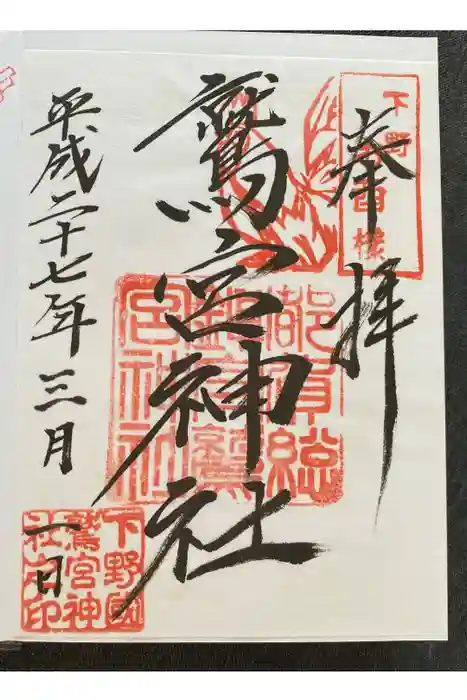 奉拝
下野
鷲宮神社
平成二十七年三月一日
下野國
鷲宮神
社之印